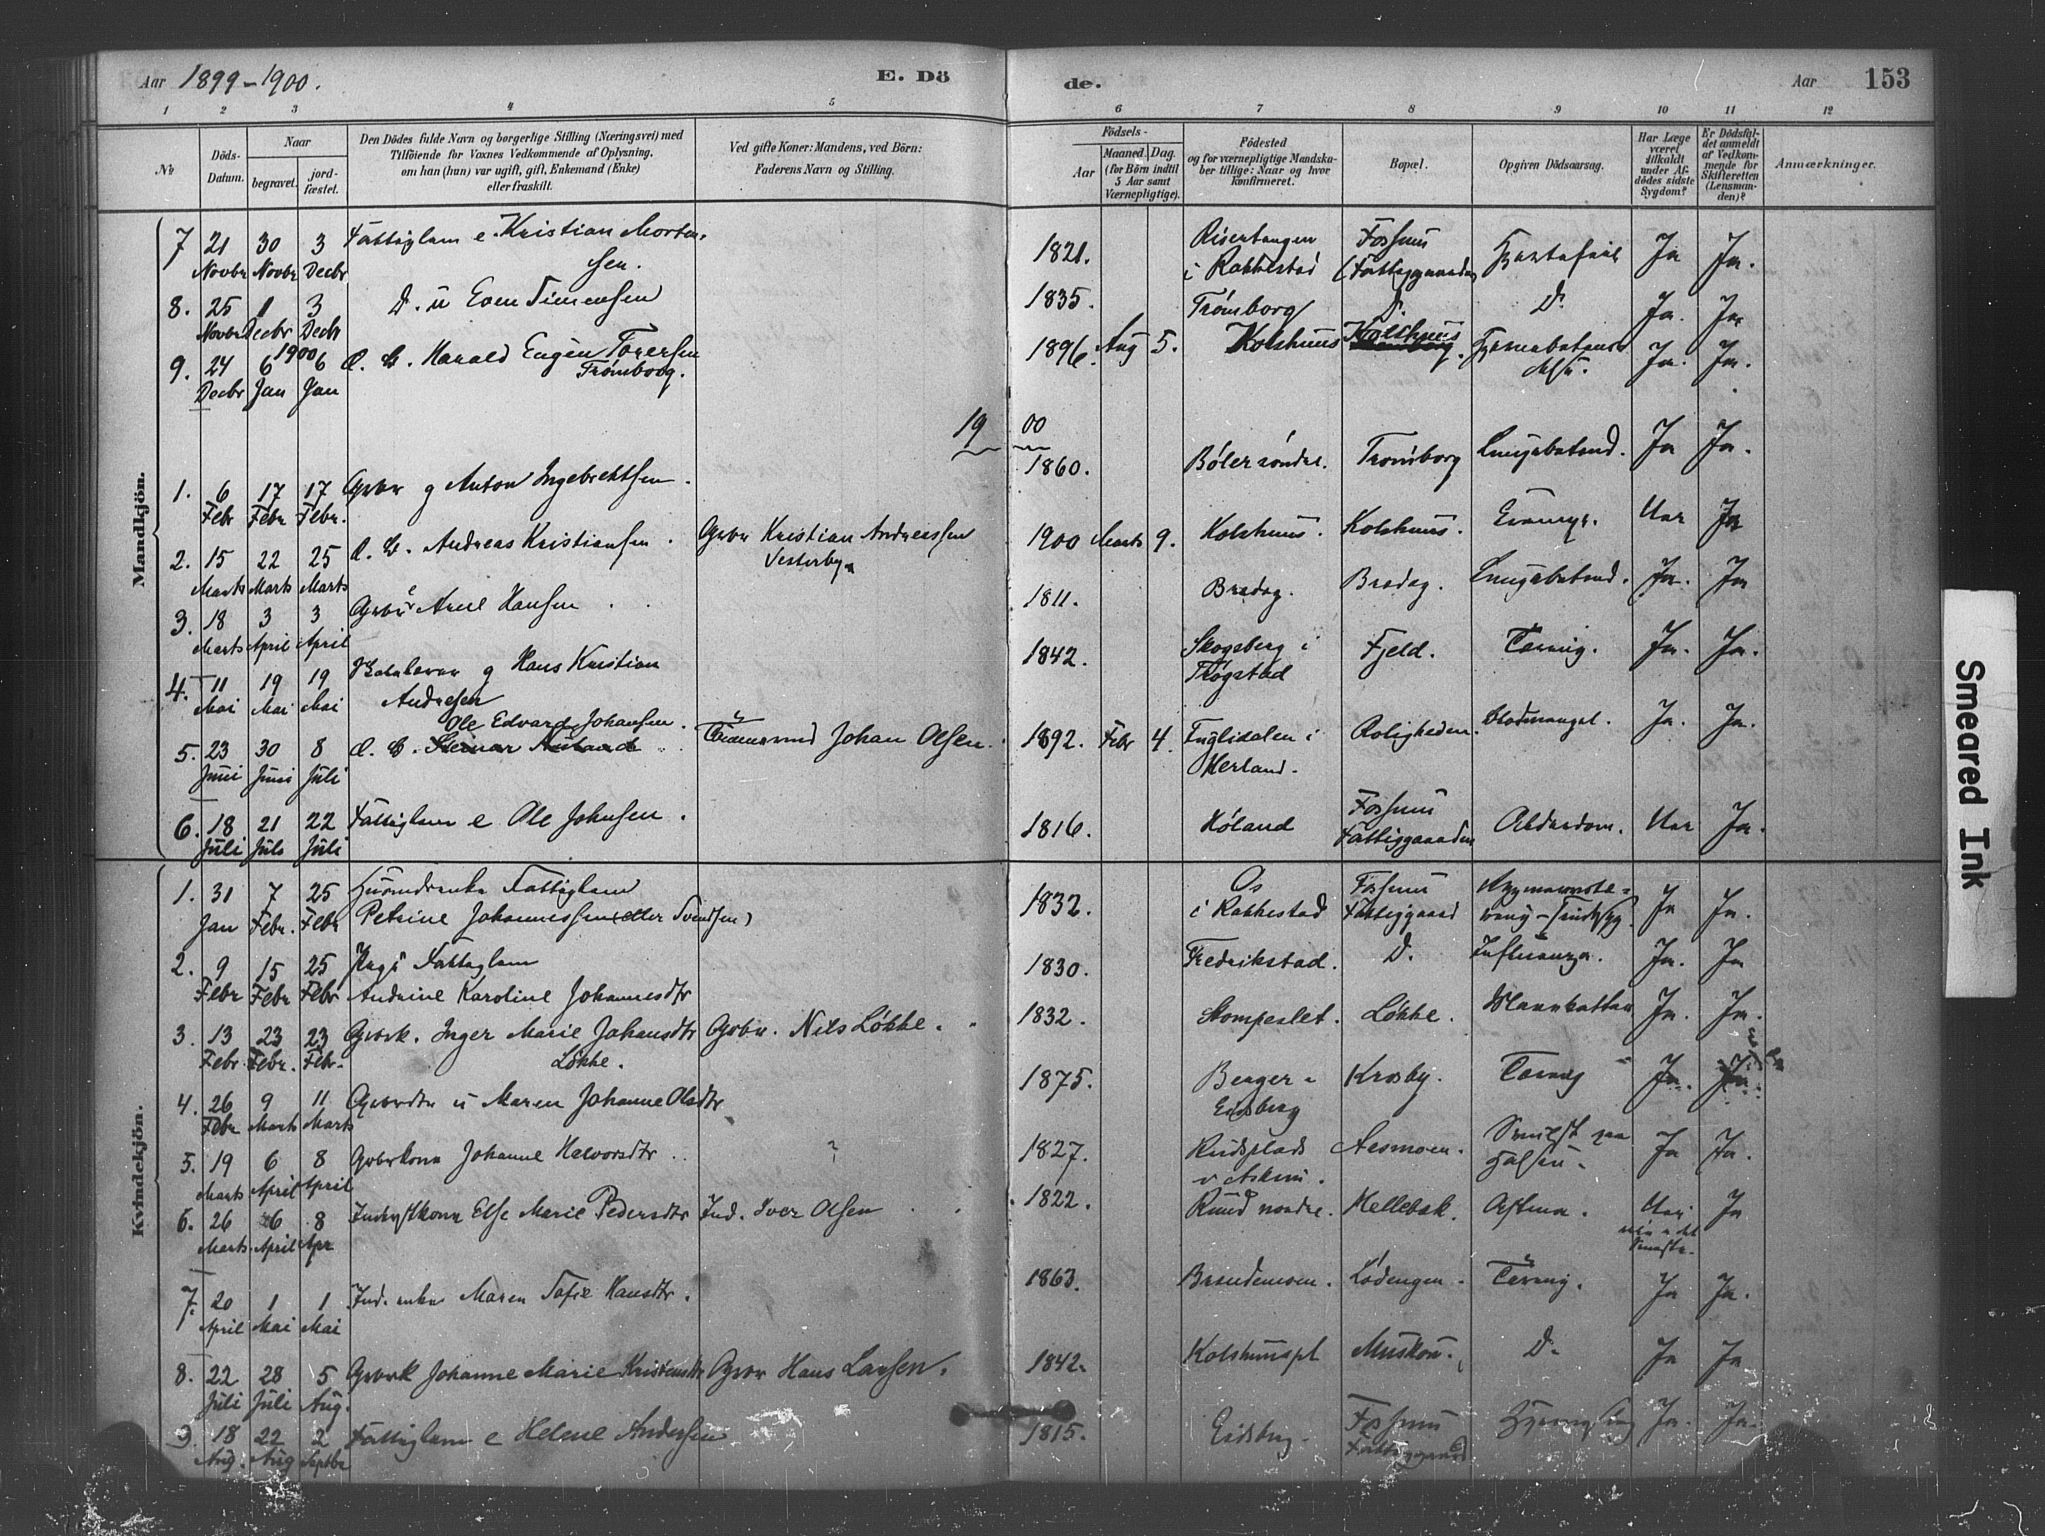 Aar 1899-1900. E. Dö de. Aar 153
1 2 3 4 5 6 7 8 9 10 11 12
Nr
Döds-Datum.
Naar
begravet.
jordfæstet.
Den Dödes fulde Navn og borgerlige Stilling (Næringsvei) med
Tilföiende for Voxnes Vedkommende af Oplysning,
om han (hun) var ugift, gift, Enkemand (Enke)
eller fraskilt.
Ved gifte Koner: Mandens, ved Börn:
Faderens Navn og Stilling.
Födsels-
Aar
Maaned. Dag.
(for Börn indtil
5 Aar samt
Værnepligtige).
Födested
og for værnepligtige Mandskaber tillige: Naar og hvor
konfirmeret.
Bopæl.
Opgiven Dödsaarsag.
Har Læge
været
tilkaldt
under Afdödes sidste
Sygdom?
Er Dödsfaldet anmeldt
af Vedkommende for
Skifteretten
(Lensmanden)?
Anmærkninger.
Mandkjön.
7 21 30 3 Fattiglem e. Kristian Morten- 1821. Risertangen Fossum Hjertefeil Ja Ja.
Novbr Novbr Decbr sen. i Rakkestad (Fattiggaarden
8. 25 1 3 D. u Even Simensen 1835. Trømborg D. D. Ja. Ja
Novbr Decbr Decbr
9. 24 6 1900 6 Harald Eugen Torersen 1896. Aug 5. Kolshuus Kolshuus Ja. Ja.
Decbr Jan Jan Trømborg.
19 00
1. 6 17 17 Gbr g Anton Ingebrektsen. 1860. Bøler søndre. Trømborg Lungebetænd. Ja Ja.
Febr Febr Febr.
2. 15 22 25 Andreas Kristiansen. Gbr Kristian Andreassen 1900 Marts 9. Kolshuus. Kolshuus. Ja
Marts Marts Marts Vesterby
3. 18 3 3 Arne Hansen 1811. Bredag. Bredag. Lungebetænd. Ja. Ja
Marts April April
4. 11 19 19 g Hans Kristian 1842. Skogsberg i Fjeld. Tæring. Ja. Ja.
Mai Mai Mai Andresen Trøgstad
Ole Edvard Johansen.
5. 23 30 8 Johan Olsen. 1892. Febr 4. Fuglidalen i Roligheden. Blodmangel. Ja. Ja.
Juni Juni Juli Herland.
6. 18 21 22 Fattiglem e Ole Johnsen. 1816. Høland Fossum Alderdom. Ja.
Juli Juli Juli Fattiggaarden
Kvindekjön.
1. 31 7 25 Husmdsenke Fattiglem 1832. Os Fossum Ja Ja.
Jan Febr. Febr Petrine Johannessen (eller Svendsen) i Rakkestad Fattiggaard
2. 9 15 25 Fattiglem 1830. Fredrikstad. D. Influenza. Ja. Ja
Febr Febr Febr Andrine Karoline Johannesdtr
3. 13 23 23 Gbrk. Inger Marie Johansdtr Gbr. Nils Løkke. 1832. Stompeslet. Løkke. Ja. Ja.
Febr Febr. Febr. Løkke.
4. 26 9 11 Gbrdtr u Maren Johanne Olsdtr 1875. Berger Krosby. Tæring Ja.
Febr Marts Marts Eidsberg
5. 19 6 8 Gbrkone Johanne Halvorsdtr ? 1827. Rudsplads Aasmoen. Ja Ja.
Marts April April v Askim.
6. 26 6 8 Else Marie Pedersdtr Ind. Iver Olsen 1822. Ruud nordre. Hellebæk. Astma. Ja
Marts April Apr
7. 20 1 1 Ind. enke Maren Sofie Hansdtr. 1863. Brendemoen. Lødengen. Tæring. Ja Ja.
April Mai Mai
8. 22 28 5 Gbrk Johanne Marie Kristensdtr Gbr Hans Larsen. 1842. Kolshuuspl Muskou. D. Ja Ja
Juli Juli Aug.
9 18 22 2 Fattiglem e Helene Andersen 1815. Eidsberg Fossum Ja. Ja.
Aug. Aug Septbr Fattiggaard
Smeared Ink